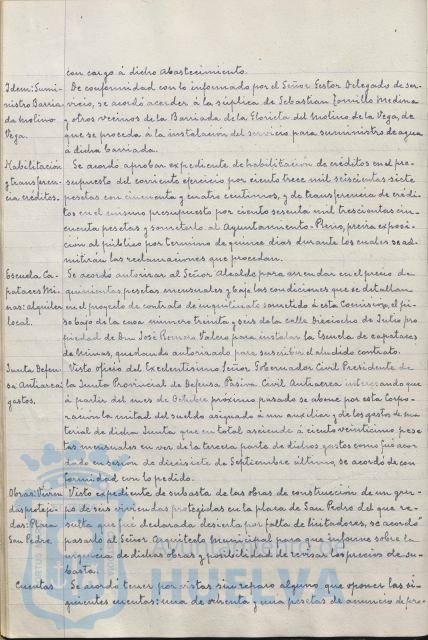 con cargo á dicho abastecimiento.
Idem: Sumi- De conformidad con lo informado por el Señor Gestor Delegado de ser-
nistro Barria vicio, se acordó acceder á la súplica de Sebastian Tornillo Medina
da Molino y otros vecinos de la Barriada de la Glorieta del Molino de la Vega, de
Vega. que se proceda á la instalación del servicio para suministro de agua
á dicha barriada.
Habilitación Se acordó aprobar expediente de habilitación de créditos en el pre-
y transferen- supuesto del corriente ejercicio por ciento trece mil seiscientas siete
cia créditos. pesetas con cincuenta y cuatro centimos, y de transferencia de crédi-
tos en el mismo presupuesto por ciento sesenta mil trescientas cin-
cuenta pesetas y someterlo al Ayuntamiento-Pleno, previa exposi-
ción al público por termino de quince dias durante los cuales se ad-
mitirán las reclamaciones que procedan.
Escuela Ca- Se acordó autorizar al Señor Alcalde para arrendar en el precio de
pataces Mi- quinientas pesetas mensuales y bajo las condiciones que se detallan
nas: alquiler en el proyecto de contrato de inquilinato sometido á esta Comision, el pi-
local. so bajo de la casa número treinta y seis de la calle Dieciocho de Julio pro-
piedad de Don José Romero Valero para instalar la Escuela de capataces
de Minas, quedando autorizado para suscribir el aludido contrato.
Junta Defen- Visto oficio del Excelentisimo Señor Gobernador Civil Presidente de
sa Antiaerea la Junta Provincial de Defensa Pasiva Civil Antiaerea interesando que
gastos. á partir del mes de Octubre próximo pasado se abone por esta Corpo-
ración la mitad del sueldo asignado á un auxiliar y de los gastos de ma-
terial de dicha Junta que en total asciende á ciento veinticinco pese
tas mensuales en vez de la tercera parte de dichos gastos como fué acor-
dado en sesión de diecisiete de Septiembre último, se acordó de con-
formidad con lo pedido.
Obras: Vivien Visto expediente de subasta de las obras de construcción de un gru-
das protegi- po de seis viviendas protegidas en la plaza de San Pedro del que re-
das: Plaza sulta que fué declarada desierta por falta de licitadores, se acordó
San Pedro. pasarlo al Señor Arquitecto Municipal para que informe sobre la
urgencia de dichas obras y posibilidad de revisar los precios de su-
basta.
Cuentas Se acordó tener por vistas sin reparo alguno que oponer las si-
guientes cuentas: una de ochenta y una pesetas de anuncio de pre-
HUELVA